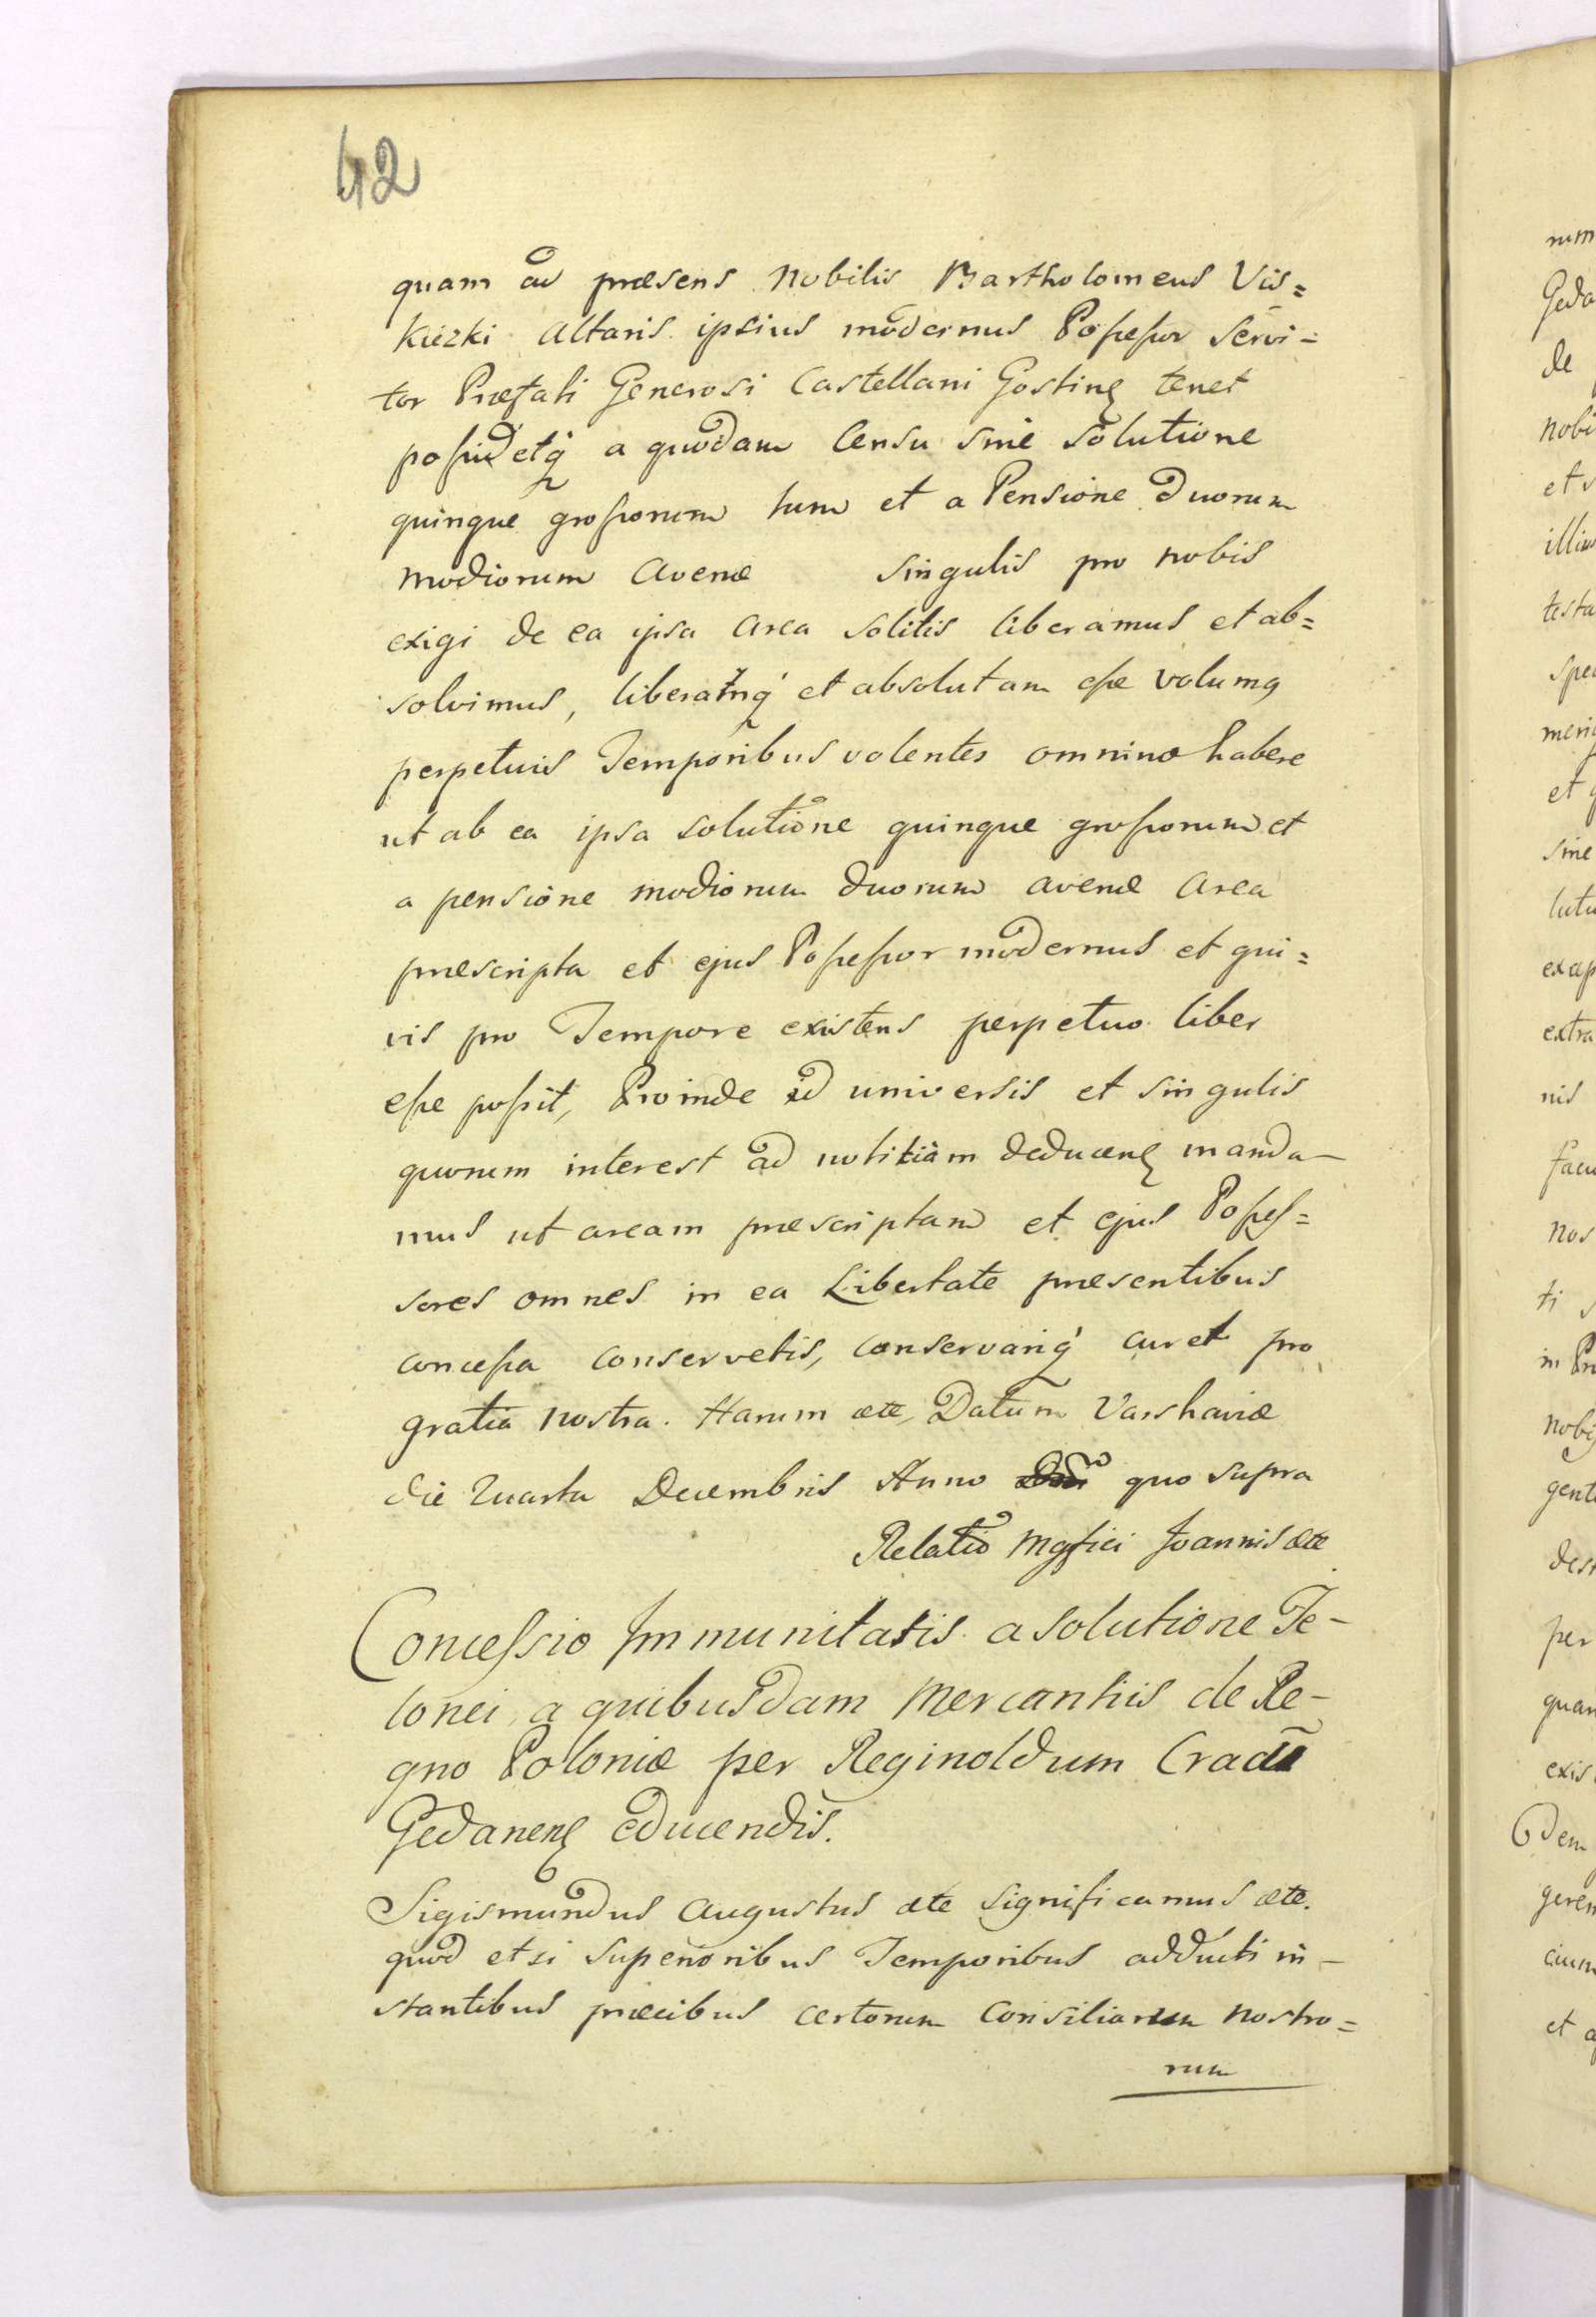 42
quam ad præsens Nobilis Bartholomeus Vis=
kiezki Altaris ipsius modernus Possessor Servi=
tor Præfati Generosi Castellani Gostinę tenet
possidetq́ a quodam Censu sive solutione
quinque grossorum tum et a Pensione Duorum
modiorum Avenæ singulis pro nobis
exigi de ea ipsa Area solitis liberamus et ab=
solvimus, liberatmq́ et absolutam esse volumq
perpetuis Temporibus volentes omnino habere
ut ab ea ipsa solutione quinque grossorum et
a pensione modiorum duorum avenæ Area
præscripta et ejus Possessor modernus et qui=
vis pro Tempore existens perpetuo liber
esse possit, Proinde id universis et singulis
quorum interest ad notitiam deducenę manda-
mus ut aream præscriptam et ejus Posses=
sores omnes in ea Libertate præsentibus
concessa conservetis, conservariq́ curet pro
gratia nostra. Harum ætc, Datum Varshaviæ
die Quarta Decembris Anno quo supra
Relatio Mgfici Joannis ætc
Concessio Immunitatis a solutione Te-
lonei a quibusdam Mercantiis de Re-
gno Poloniæ per Reginoldum Cracū
Gedanenę educendis.
Sigismundus Augustus ætc significamus ætc.
quod etsi superioribus Temporibus adducti in-
stantibus præcibus certorum Consiliarum nostro=
rum
nim
Geda
de
nobi
et s
testa
spe
meri
et q
sine
lutu
exap
extra
nis
facu
nos
ti s
in Pr
nobi
gent
dest
per
quam
exis
dem
geren
cium
et q